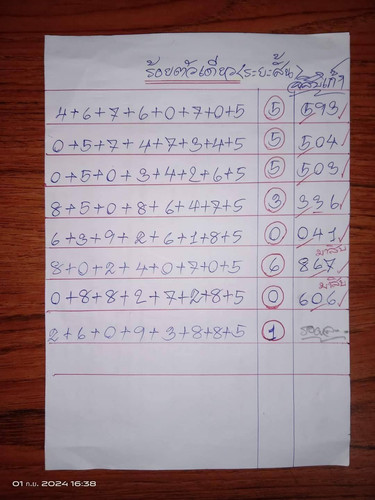 ร้อยตัวเดียว(ระยะสั้น)
4+6+7+6+0+7+0+5 5 593
0+5+7+4+7+3+4+5 5 504
0+5+0+3+4+2+6+5 5 503
8+5+0+8+6+4+7+5 3 336
6+3+9+2+6+1+8+5 0 041
8+0+2+4+0+7+0+5 6 867
0+8+8+2+7+2+8+5 0 606
2+6+0+9+3+8+8+5 1
01 ก.ย. 2024 16:38